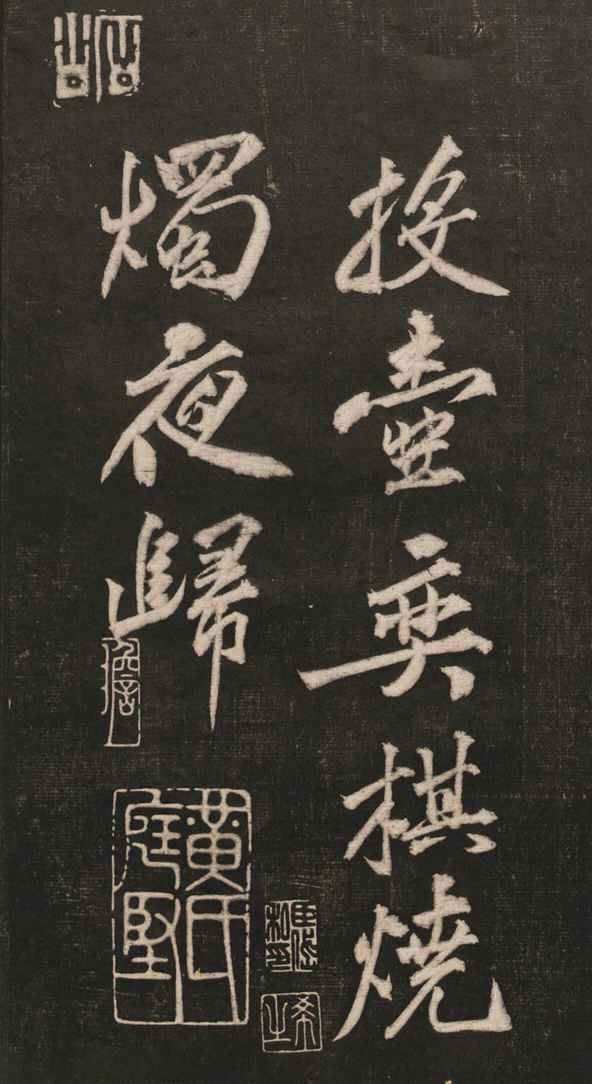 投壺弈棋燒
燭夜歸
黃氏庭堅